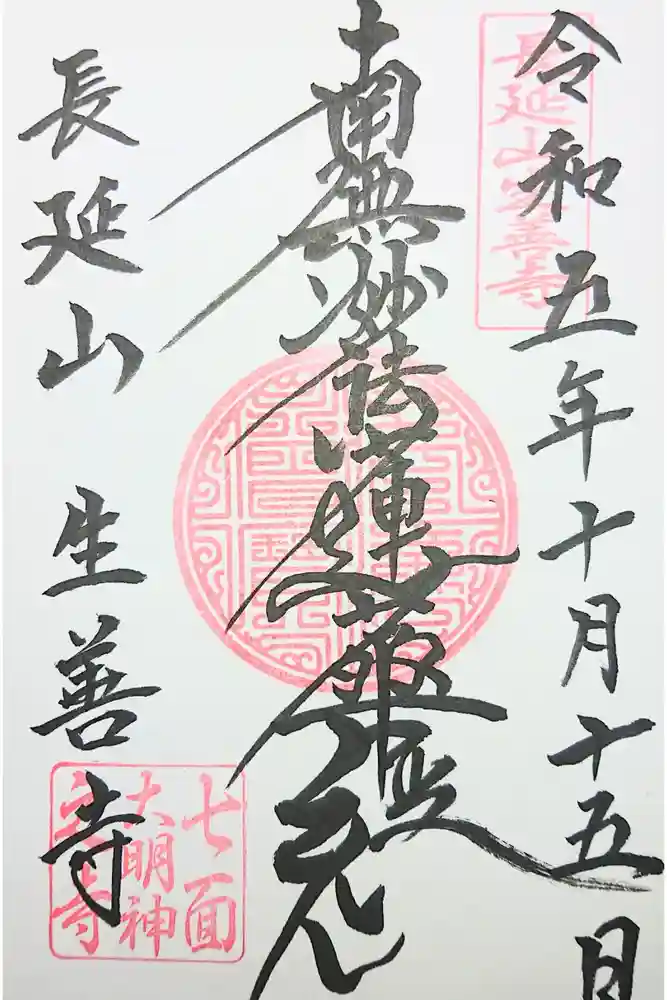 令和五年十月十五日
長延山生善寺
南無妙法蓮華經
長延山 生善寺
七面
大明神